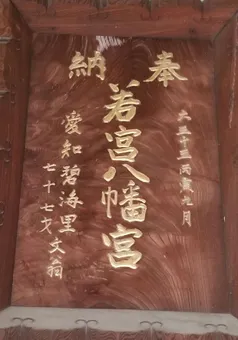 奉納
大正十五丙寅九月
若宮八幡宮
愛知碧海里文翁
七十七才